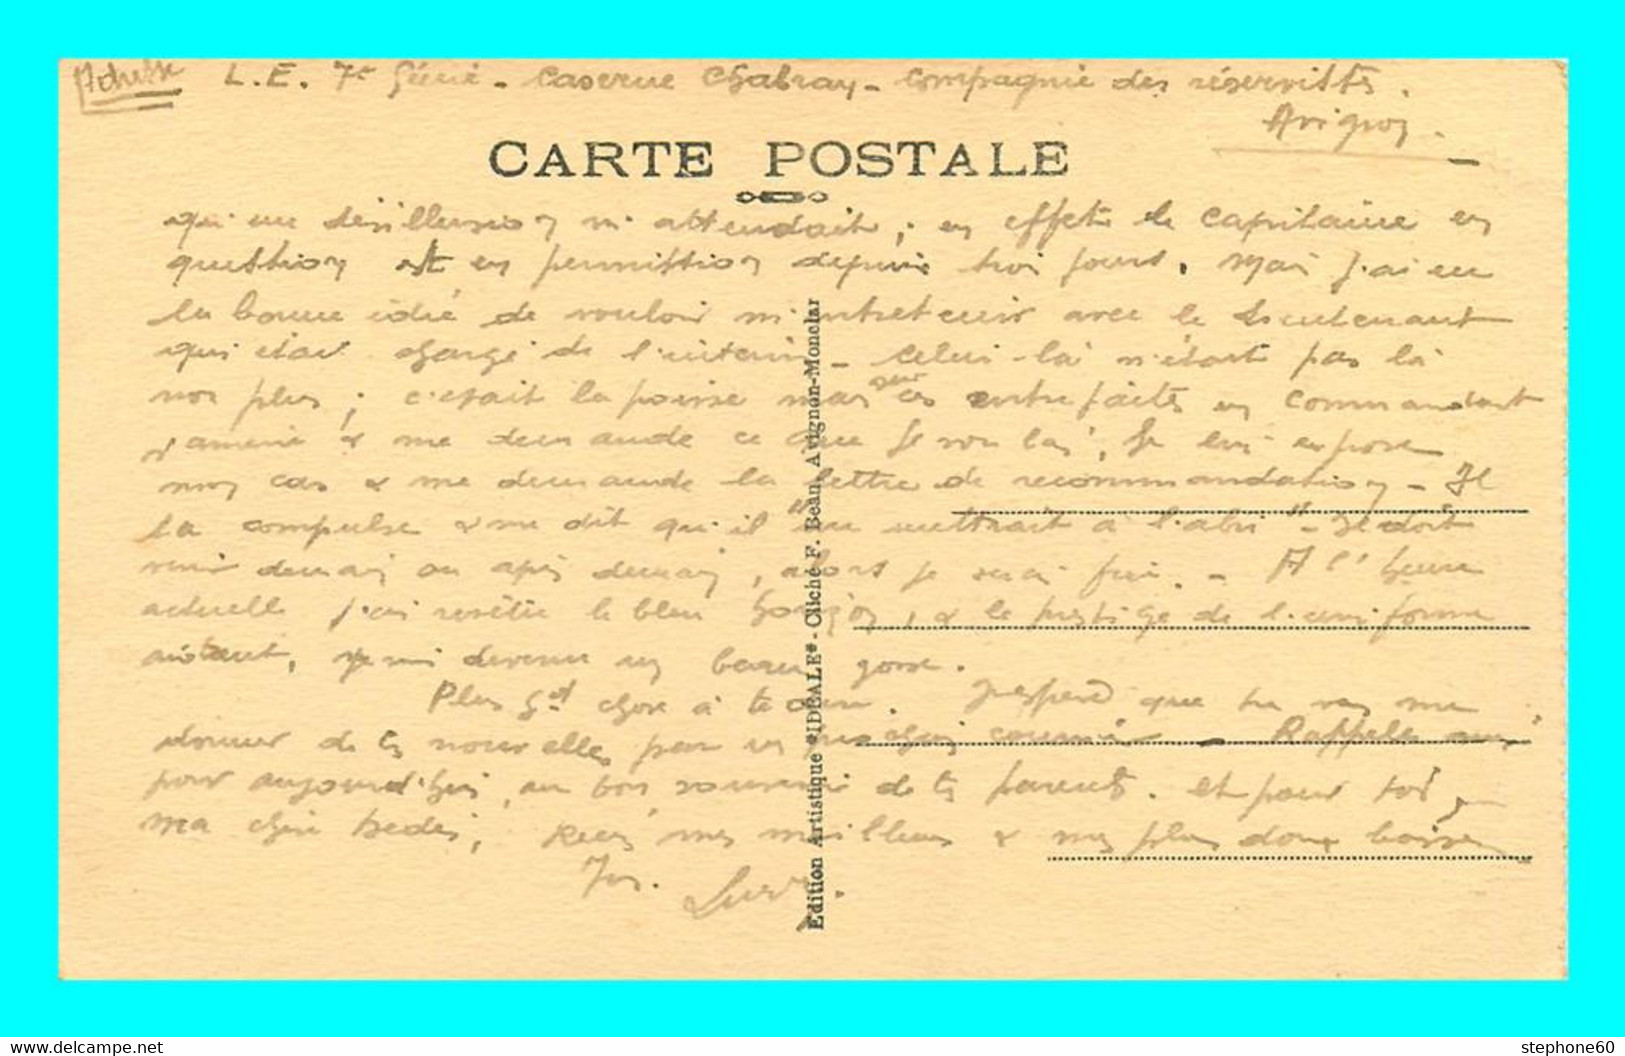 Adresse L.E. 7e Génie - Caserne Chabran - Compagnie des réservistes.
Avignon.
CARTE POSTALE
qu'une désillusion m'attendait ; en effet le capitaine en
question est en permission depuis trois jours. Mais j'ai eu
la bonne idée de vouloir m'entretenir avec le lieutenant
qui était chargé de l'intérim - Celui-là n'était pas là
non plus ; c'était la poisse mais sur ces entrefaites un commandant
& me demande ce que je voulais, je lui expose
mon cas & me demande la lettre de recommandation - Il
la compulse & me dit qu'il "me mettrait à l'abri" - Je dois
venir demain ou après demain, alors je serai fixé. - A l'heure
actuelle j'ai revêtu le bleu horizon, & le prestige de l'uniforme
aidant, je suis devenu un beau gosse.
Plus gd chose à te dire. J'espère que tu vas me
donner de tes nouvelles par un prochain courrier - Rappelle moi
pour aujourd'hui, au bon souvenir de tes parents. Et pour toi,
ma chère, reçois mes meilleurs & mes plus doux baisers
Edition Artistique "IDEALE" - Cliché F. Bean, Avignon-Monclar
stephone60
www.delcampe.net